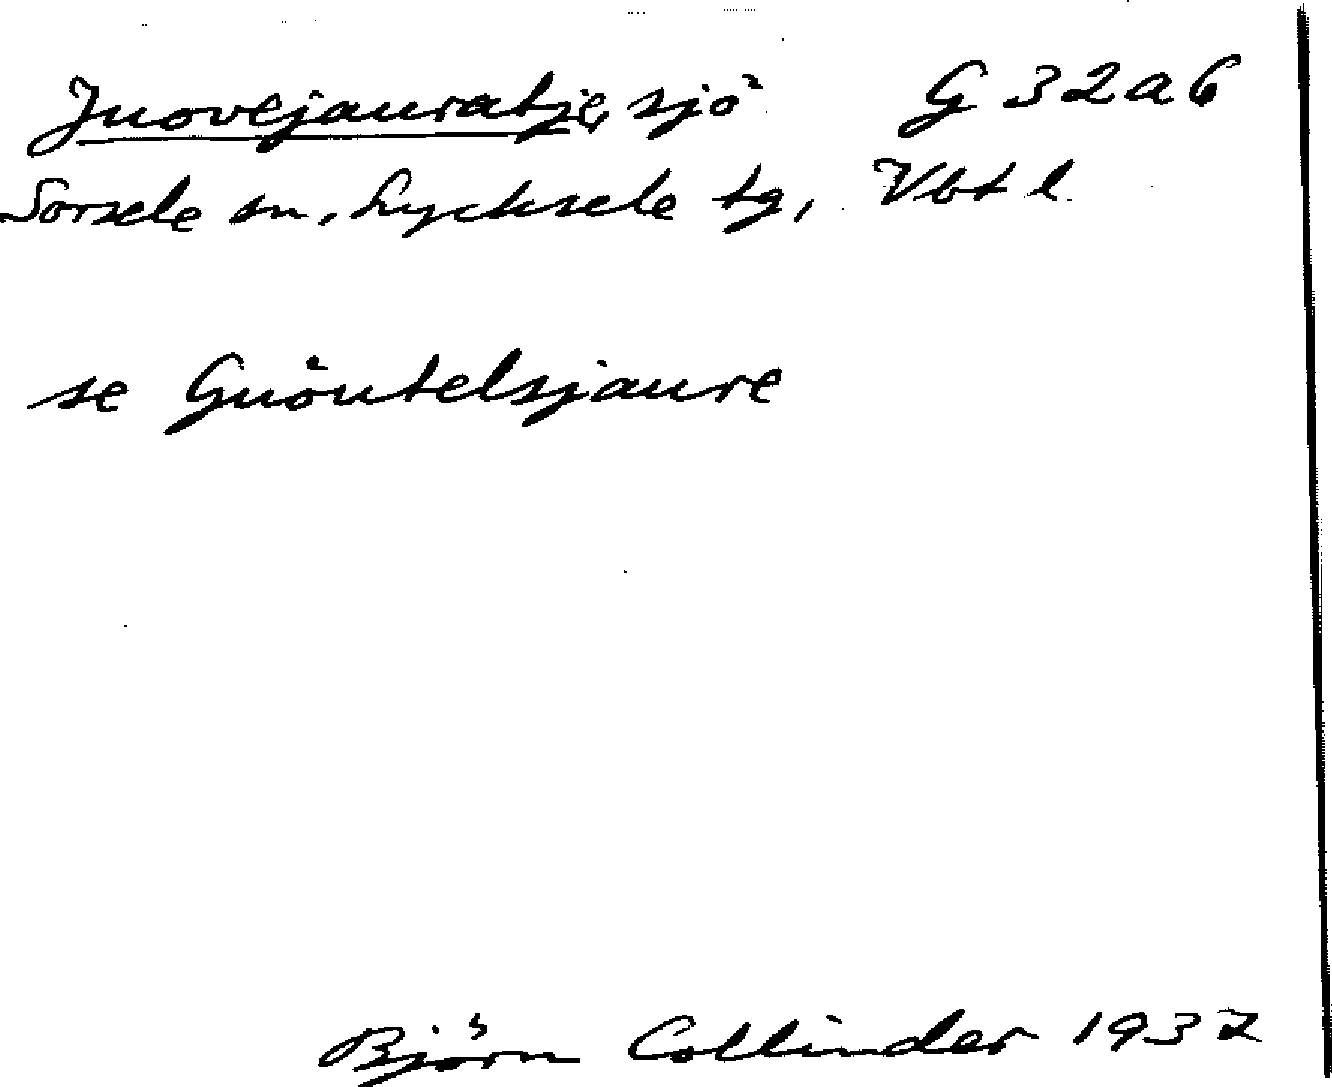 Juovejauratje, sjö G 32 a 6
Sorsele sn, Lycksele tg, Vbt l.
se Guöutelsjaure
Björn Collinder 1937